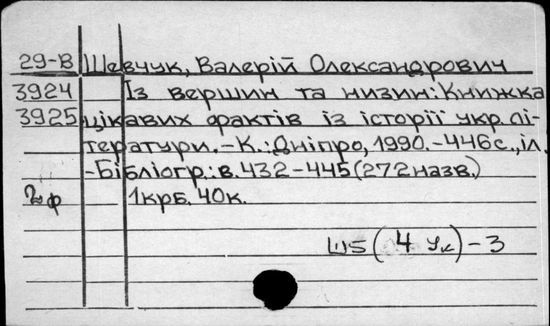 29-В Шевчук, Валерій Олександрович
3924 Із вершин та низин: Книжка
3925 цікавих фактів із історії укр. лі-
тератури. – К.: Дніпро, 1990. – 446с., іл.
– Бібліогр.: в. 432-445 (272 назв.)
2ф 1крб. 40к.
Ш5(4 Ук)-3